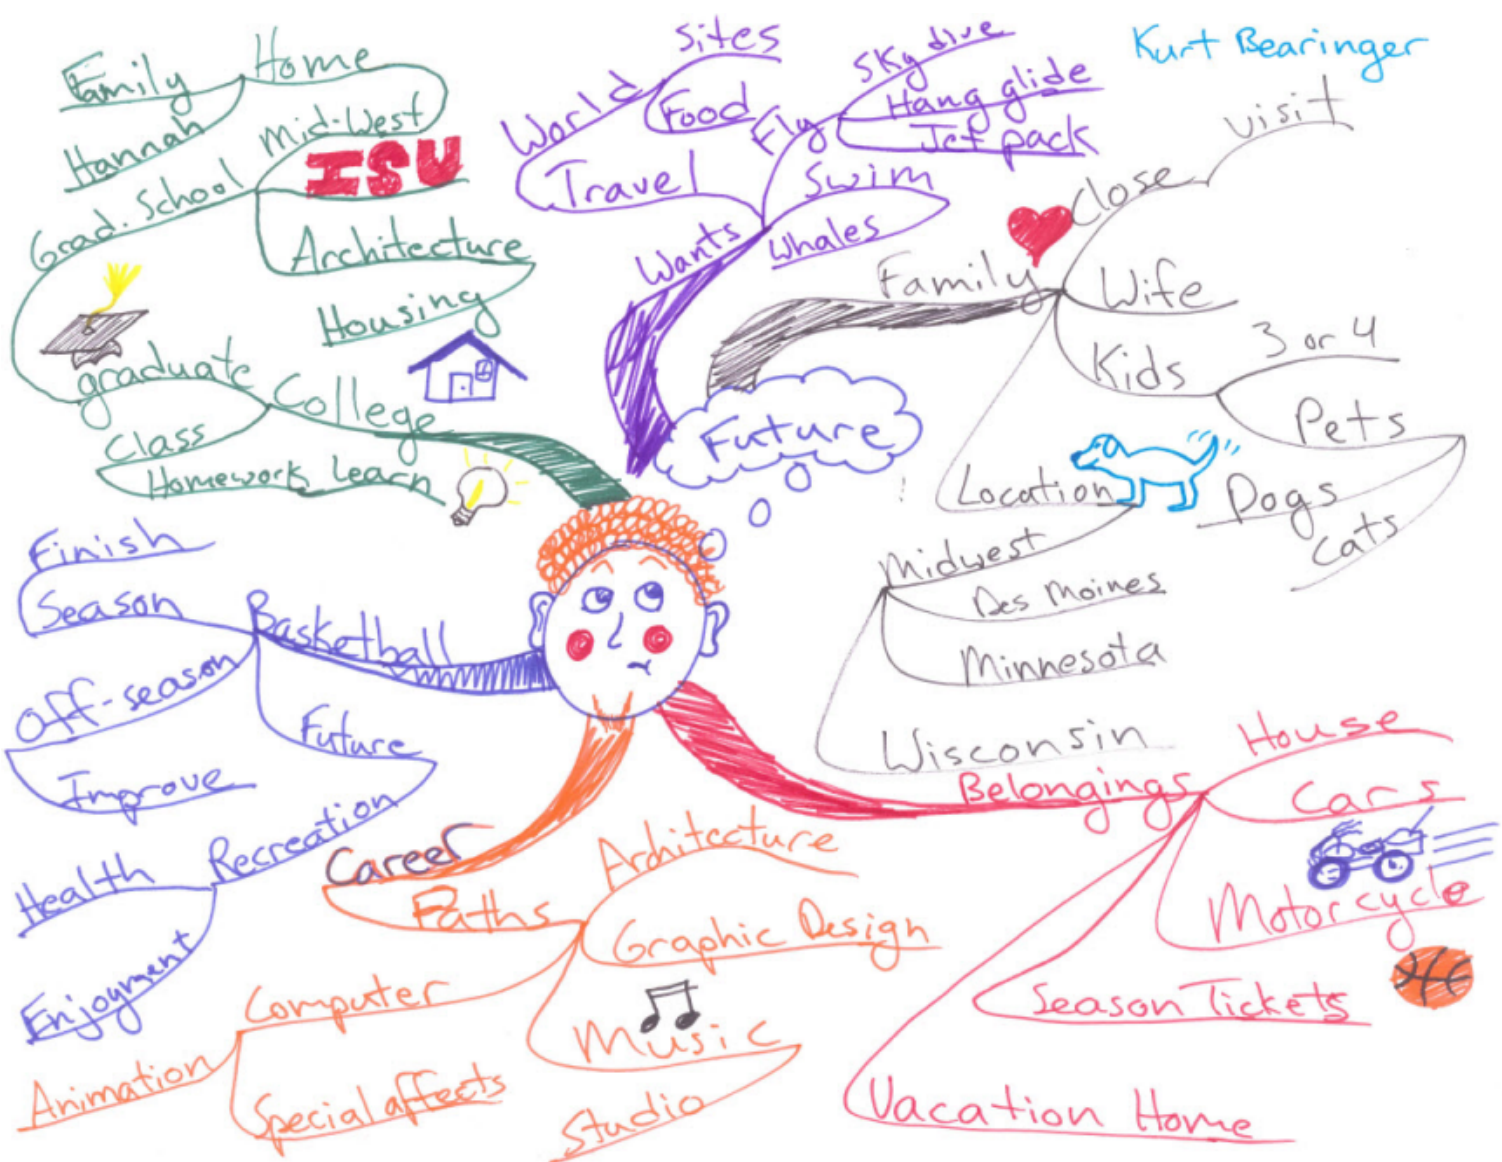 Kurt Bearinger
Future
College
graduate
Class
Homework Learn
Grad. School
Mid-West
ISU
Home
Family
Hannah
Architecture
Housing
Wants
Travel
World
Sites
Food
Fly
Sky dive
Hang glide
Jet pack
Swim
Whales
Family
Close
Visit
Wife
Kids
3 or 4
Pets
Dogs
Cats
Location
Midwest
Des Moines
Minnesota
Wisconsin
Belongings
House
Cars
Motorcycle
Season Tickets
Vacation Home
Career
Paths
Architecture
Graphic Design
Music
Studio
Computer
Animation
Special affects
Basketball
Season
Finish
Off-season
Improve
Future
Recreation
Health
Enjoyment